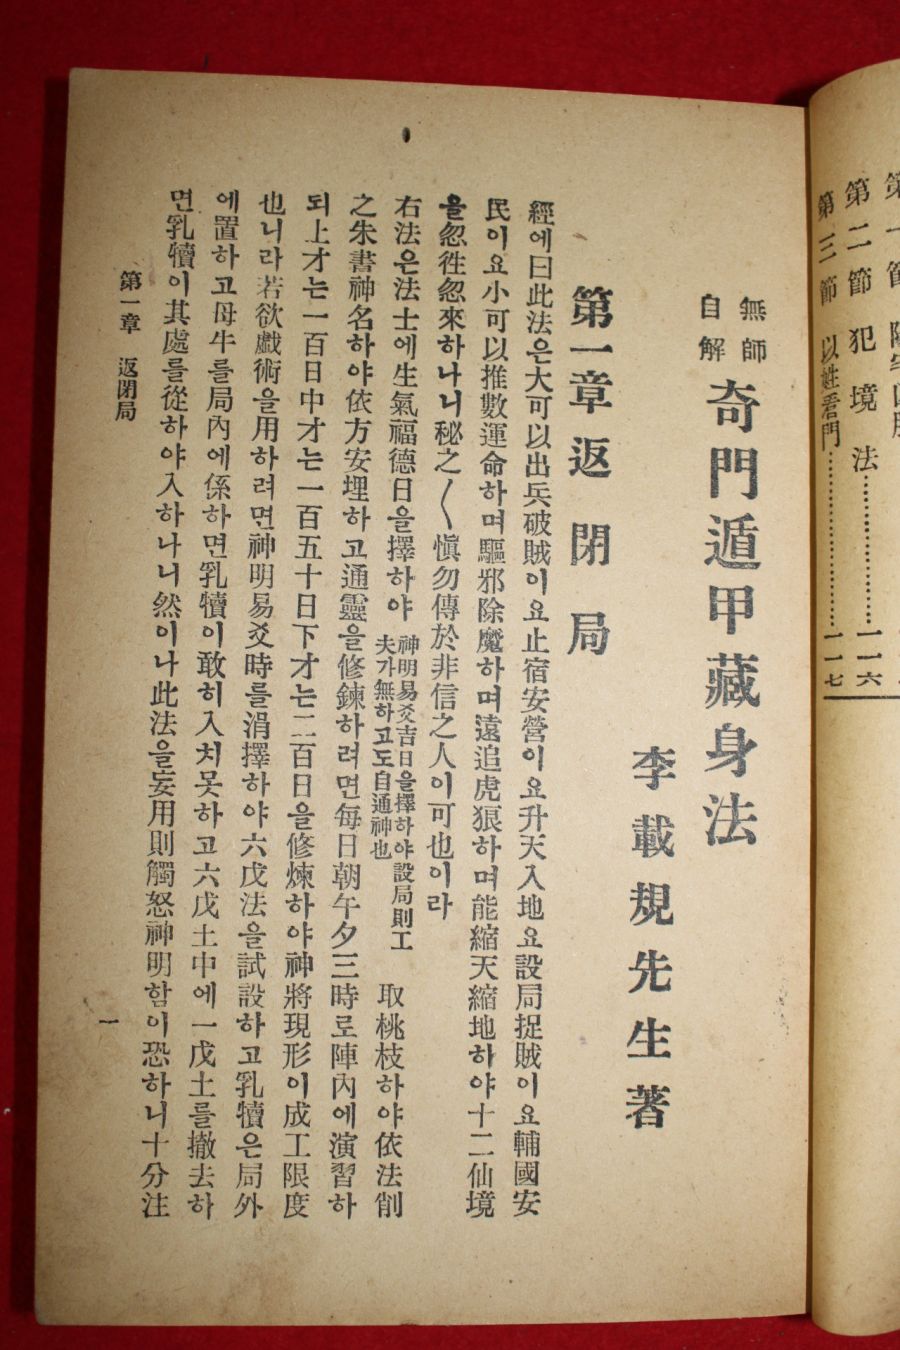 第二節 犯境法……………一一六
第三節 以姓看門……………一一七
無師
自解
奇門遁甲藏身法
李載規先生著
第一章 返閉局
經에曰此法은大可以出兵破賊이요止宿安營이요升天入地요設局捉賊이요輔國安
民이요小可以推數運命하며驅邪除魔하며遠追虎狼하며能縮天縮地하야十二仙境
을忽徃忽來하나니秘之〱愼勿傳於非信之人이可也이라
右法은法士에生氣福德日을擇하야
神明易爻吉日을擇하야設局則工
夫가無하고도自通神也
取桃枝하야依法削
之朱書神名하야依方安埋하고通靈을修鍊하려면每日朝午夕三時로陣內에演習하
되上才는一百日中才는一百五十日下才는二百日을修煉하야神將現形이成工限度
也니라若欲戱術을用하려면神明易爻時를涓擇하야六戊法을試設하고乳犢은局外
에置하고母牛를局內에係하면乳犢이敢히入치못하고六戊土中에一戊土를撤去하
면乳犢이其處를從하야入하나니然이나此法을妄用則觸怒神明함이恐하니十分注
第一章 返閉局
一